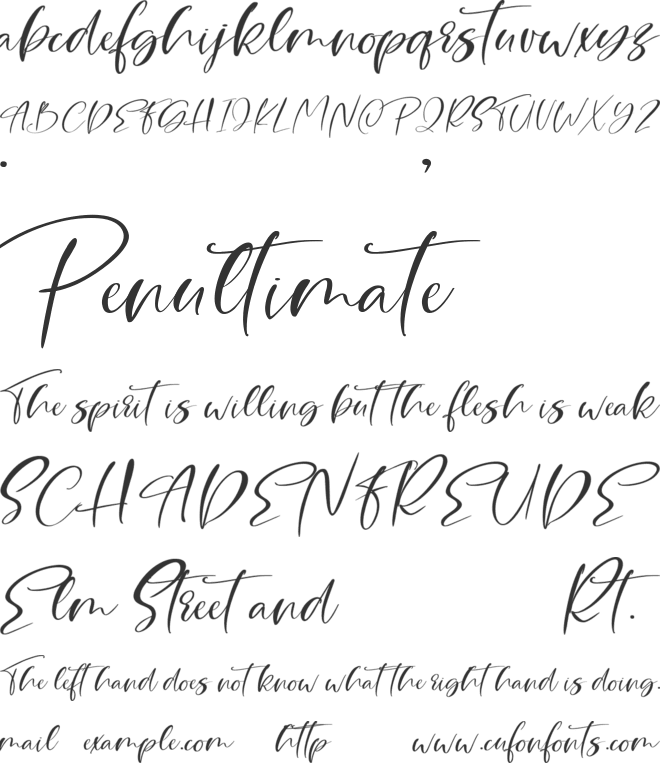 abcdefghijklmnopqrstuvwxyz
ABCDEFGHIJKLMNOPQRSTUVWXYZ
. ,
Penultimate
The spirit is willing but the flesh is weak
SCHADENFREUDE
Elm Street and Rt.
The left hand does not know what the right hand is doing.
mail example.com http www.cufonfonts.com